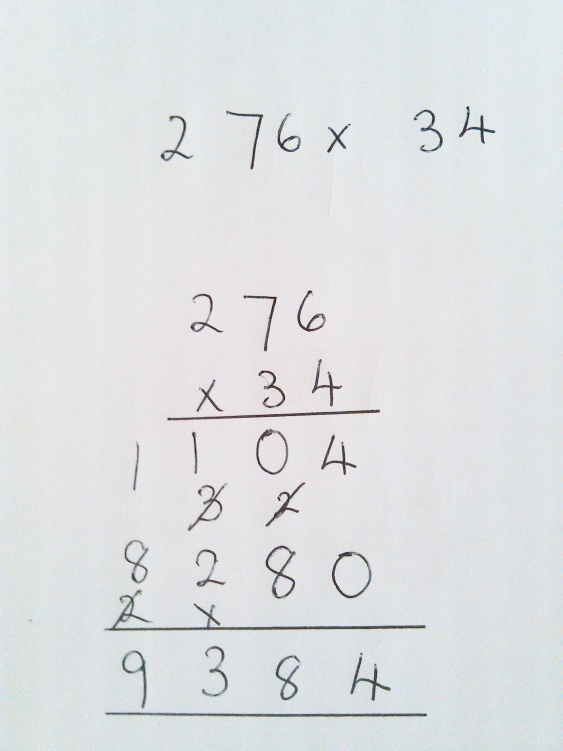 276 x 34
276
x 34
1104
3 2
8280
2 1
9384